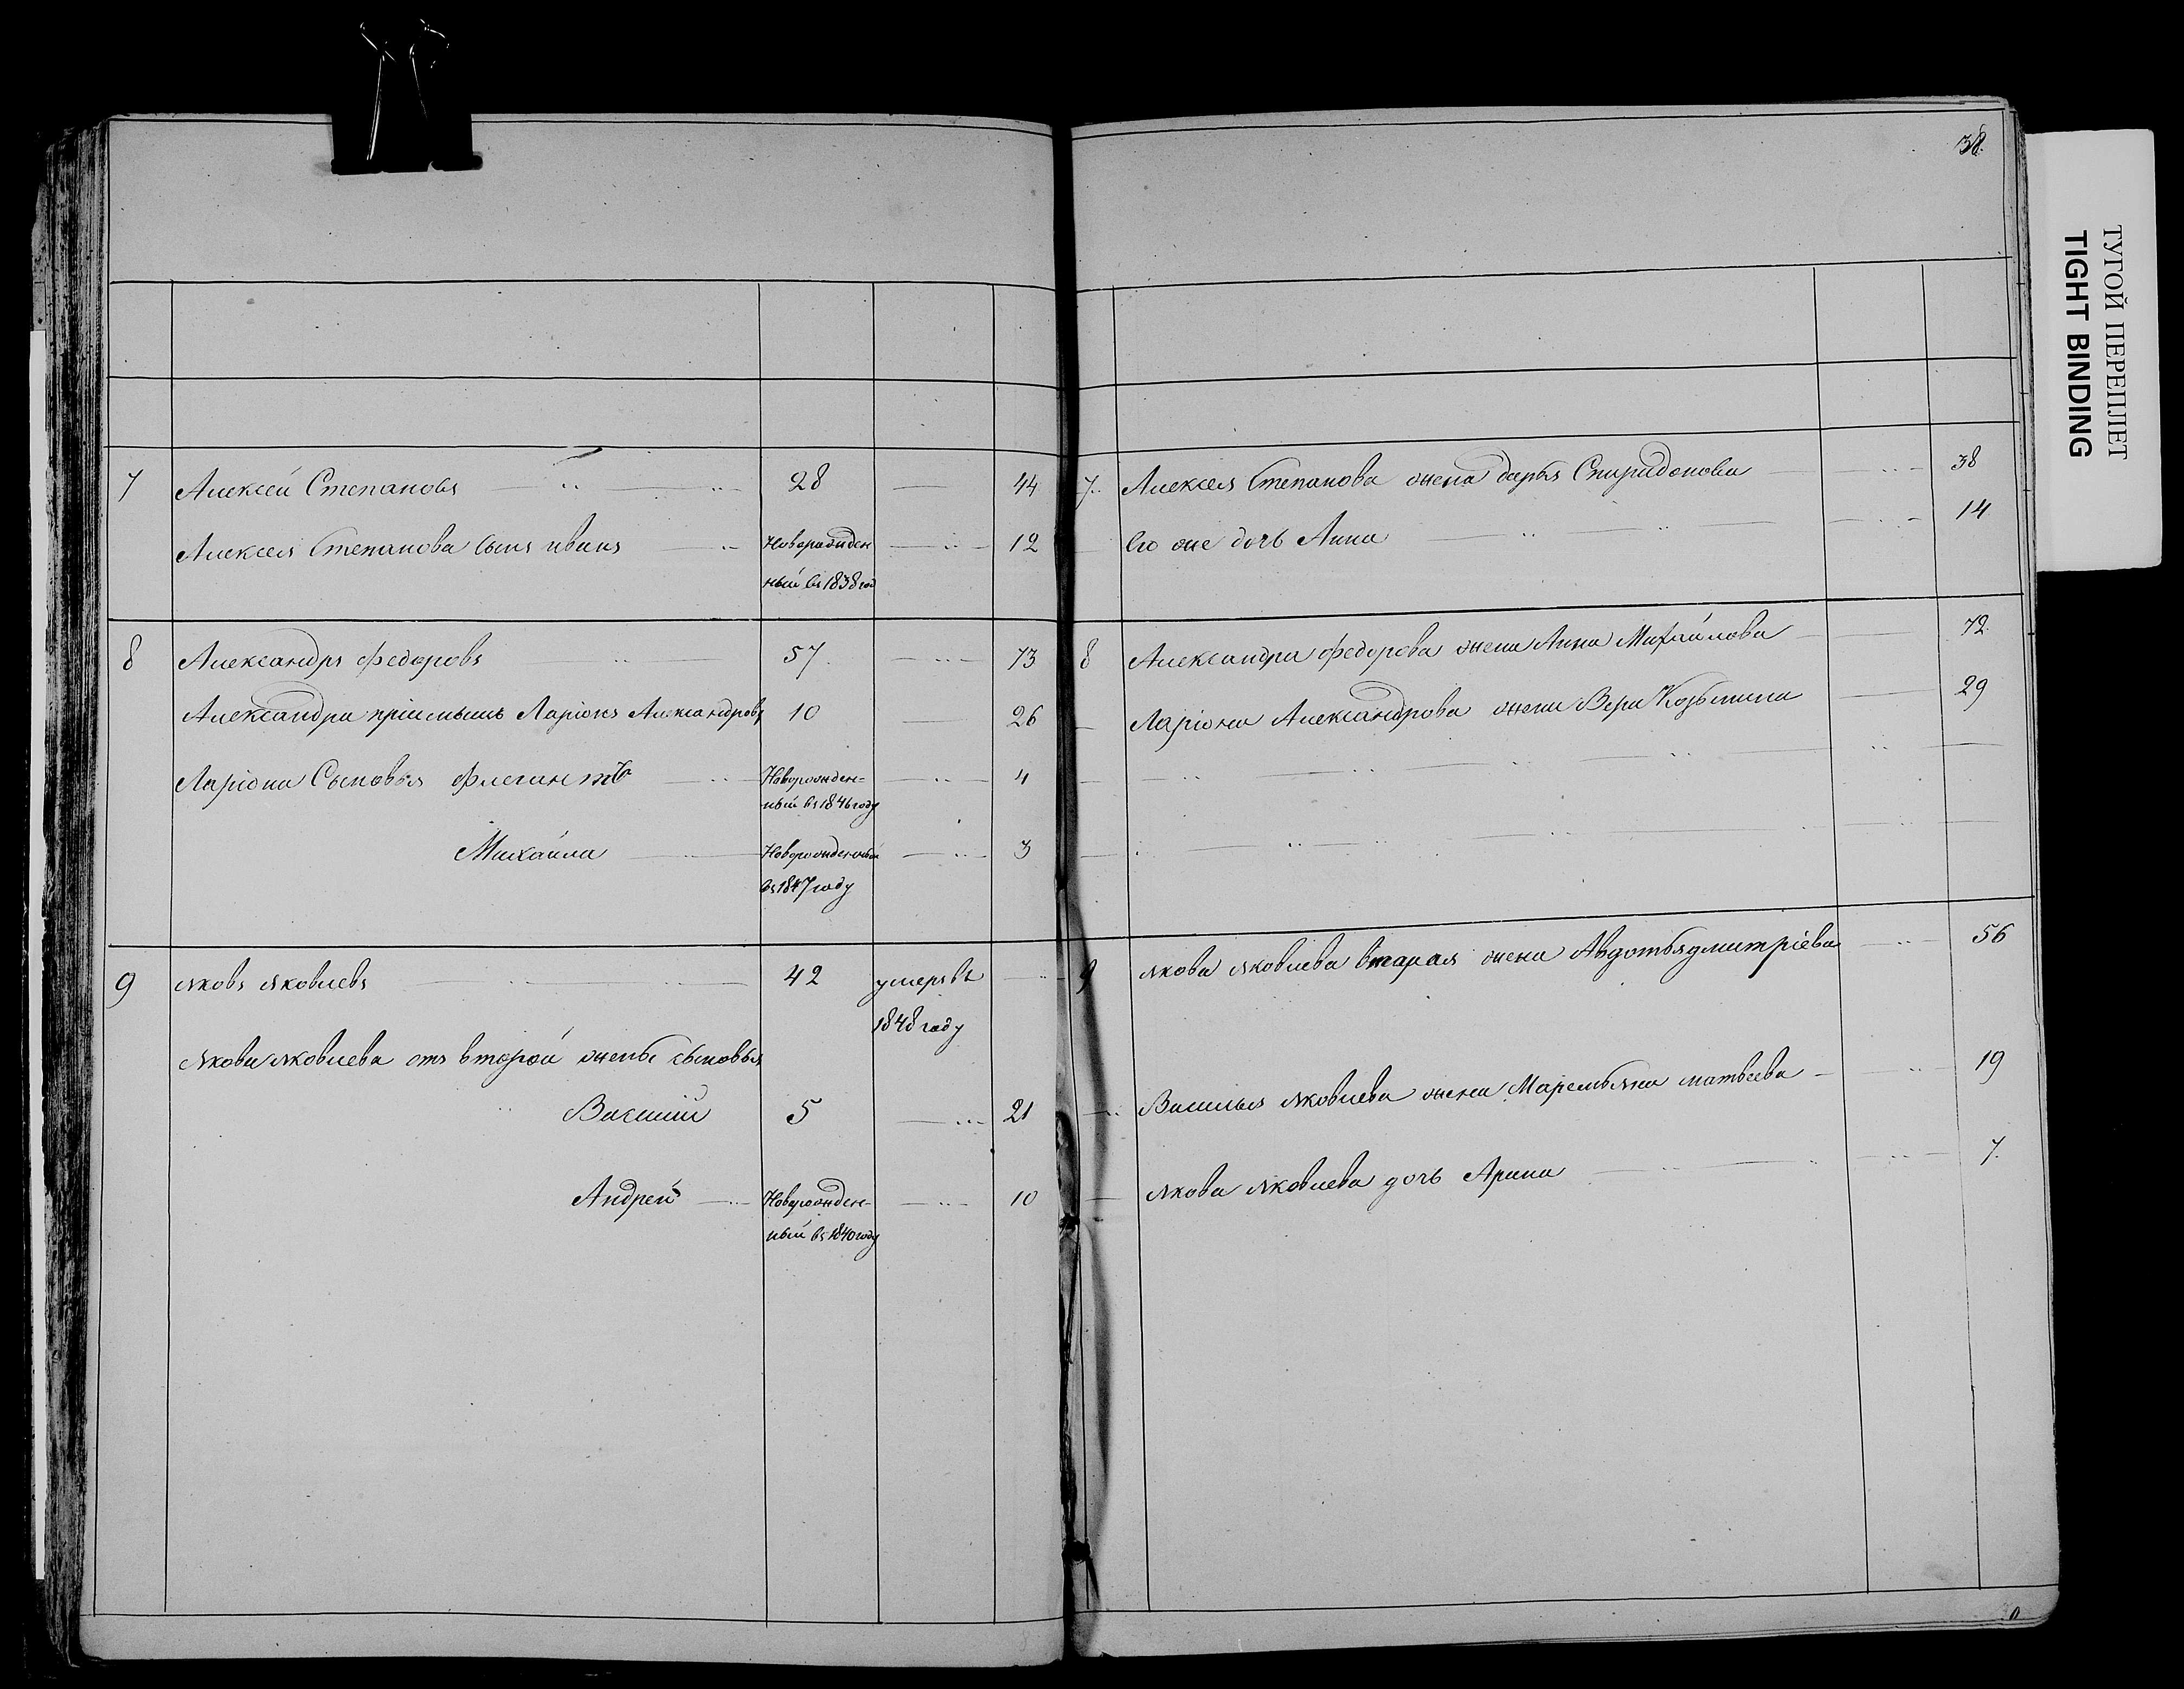 38.
ТУГОЙ ПЕРЕПЛЕТ
TIGHT BINDING
7 Алексей Степановъ 28 44
Алексея Степанова сынъ иванъ Новорожден 12
ный въ 1838 год
8 Александръ Федоровъ 57. 73
Александра пріимышъ Ларіонъ Александровъ 10 26
Ларіона Сыновья Флегантъ Новорожден= 4
ный въ 1846 году
Михайла Новорожденный 3
въ 1847 году
9 яковъ яковлевъ 42 умеръ въ
1848 году
якова яковлева отъ второй жены сыновья
Василий 5 21
Андрей Новорожден- 10
ный въ 1840 году
7. Алексея Степанова жена дарья Спиридонова 38
Его же дочь Анна 14
8 Александра Федорова жена Анна Михайлова 72
Ларіона Александрова жена Вера Козьмина 29
9 якова яковлева вторая жена Авдотья дмитріева 56
Василья яковлева жена Маремьяна матвеева 19
якова яковлева дочь Арина 7.